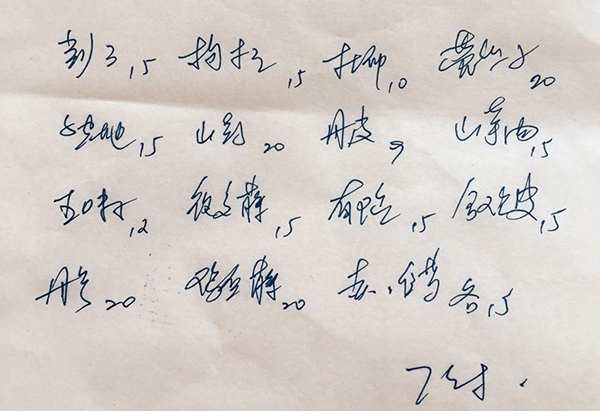 15 枸杞15 杜仲10 20
地15 山药20 丹皮9 山萸肉15
五味12 夜交藤15 15 合欢皮15
丹参20 鸡血藤20 赤、白芍各15
7付.